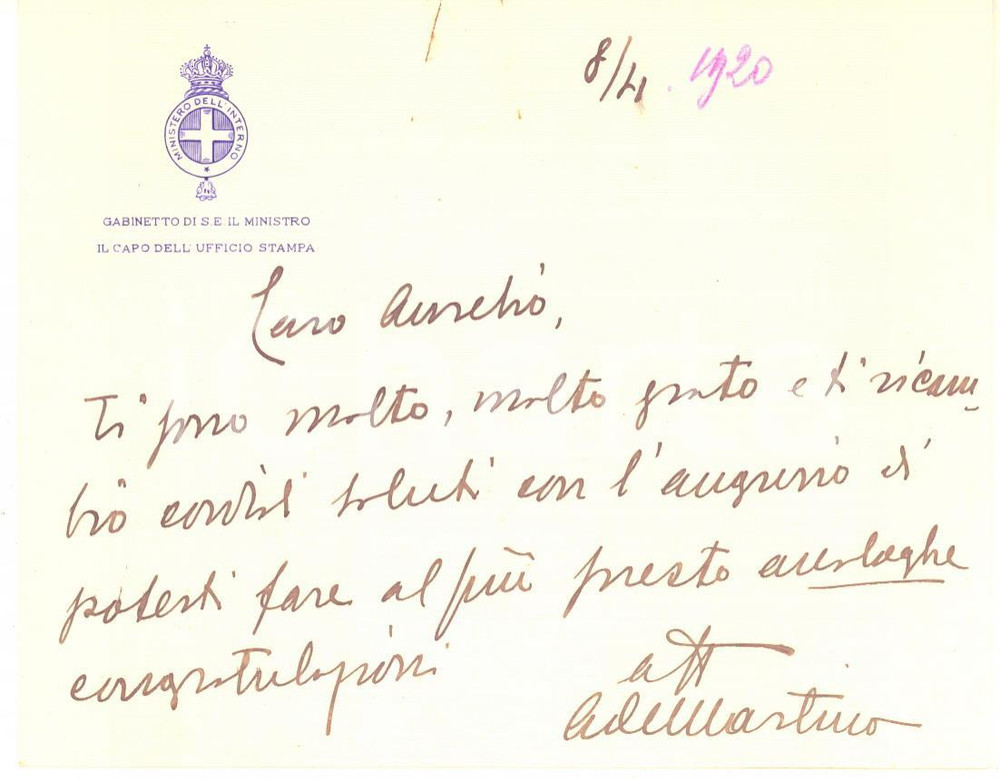 8/4 . 1920
MINISTERO DELL'INTERNO
GABINETTO DI S.E. IL MINISTRO
IL CAPO DELL'UFFICIO STAMPA
Caro Aurelio,
Ti sono molto, molto grato e ti ricam-
bio cordiali saluti con l'augurio di
poterti fare al più presto analoghe
congratulazioni
aff
AdeMartino